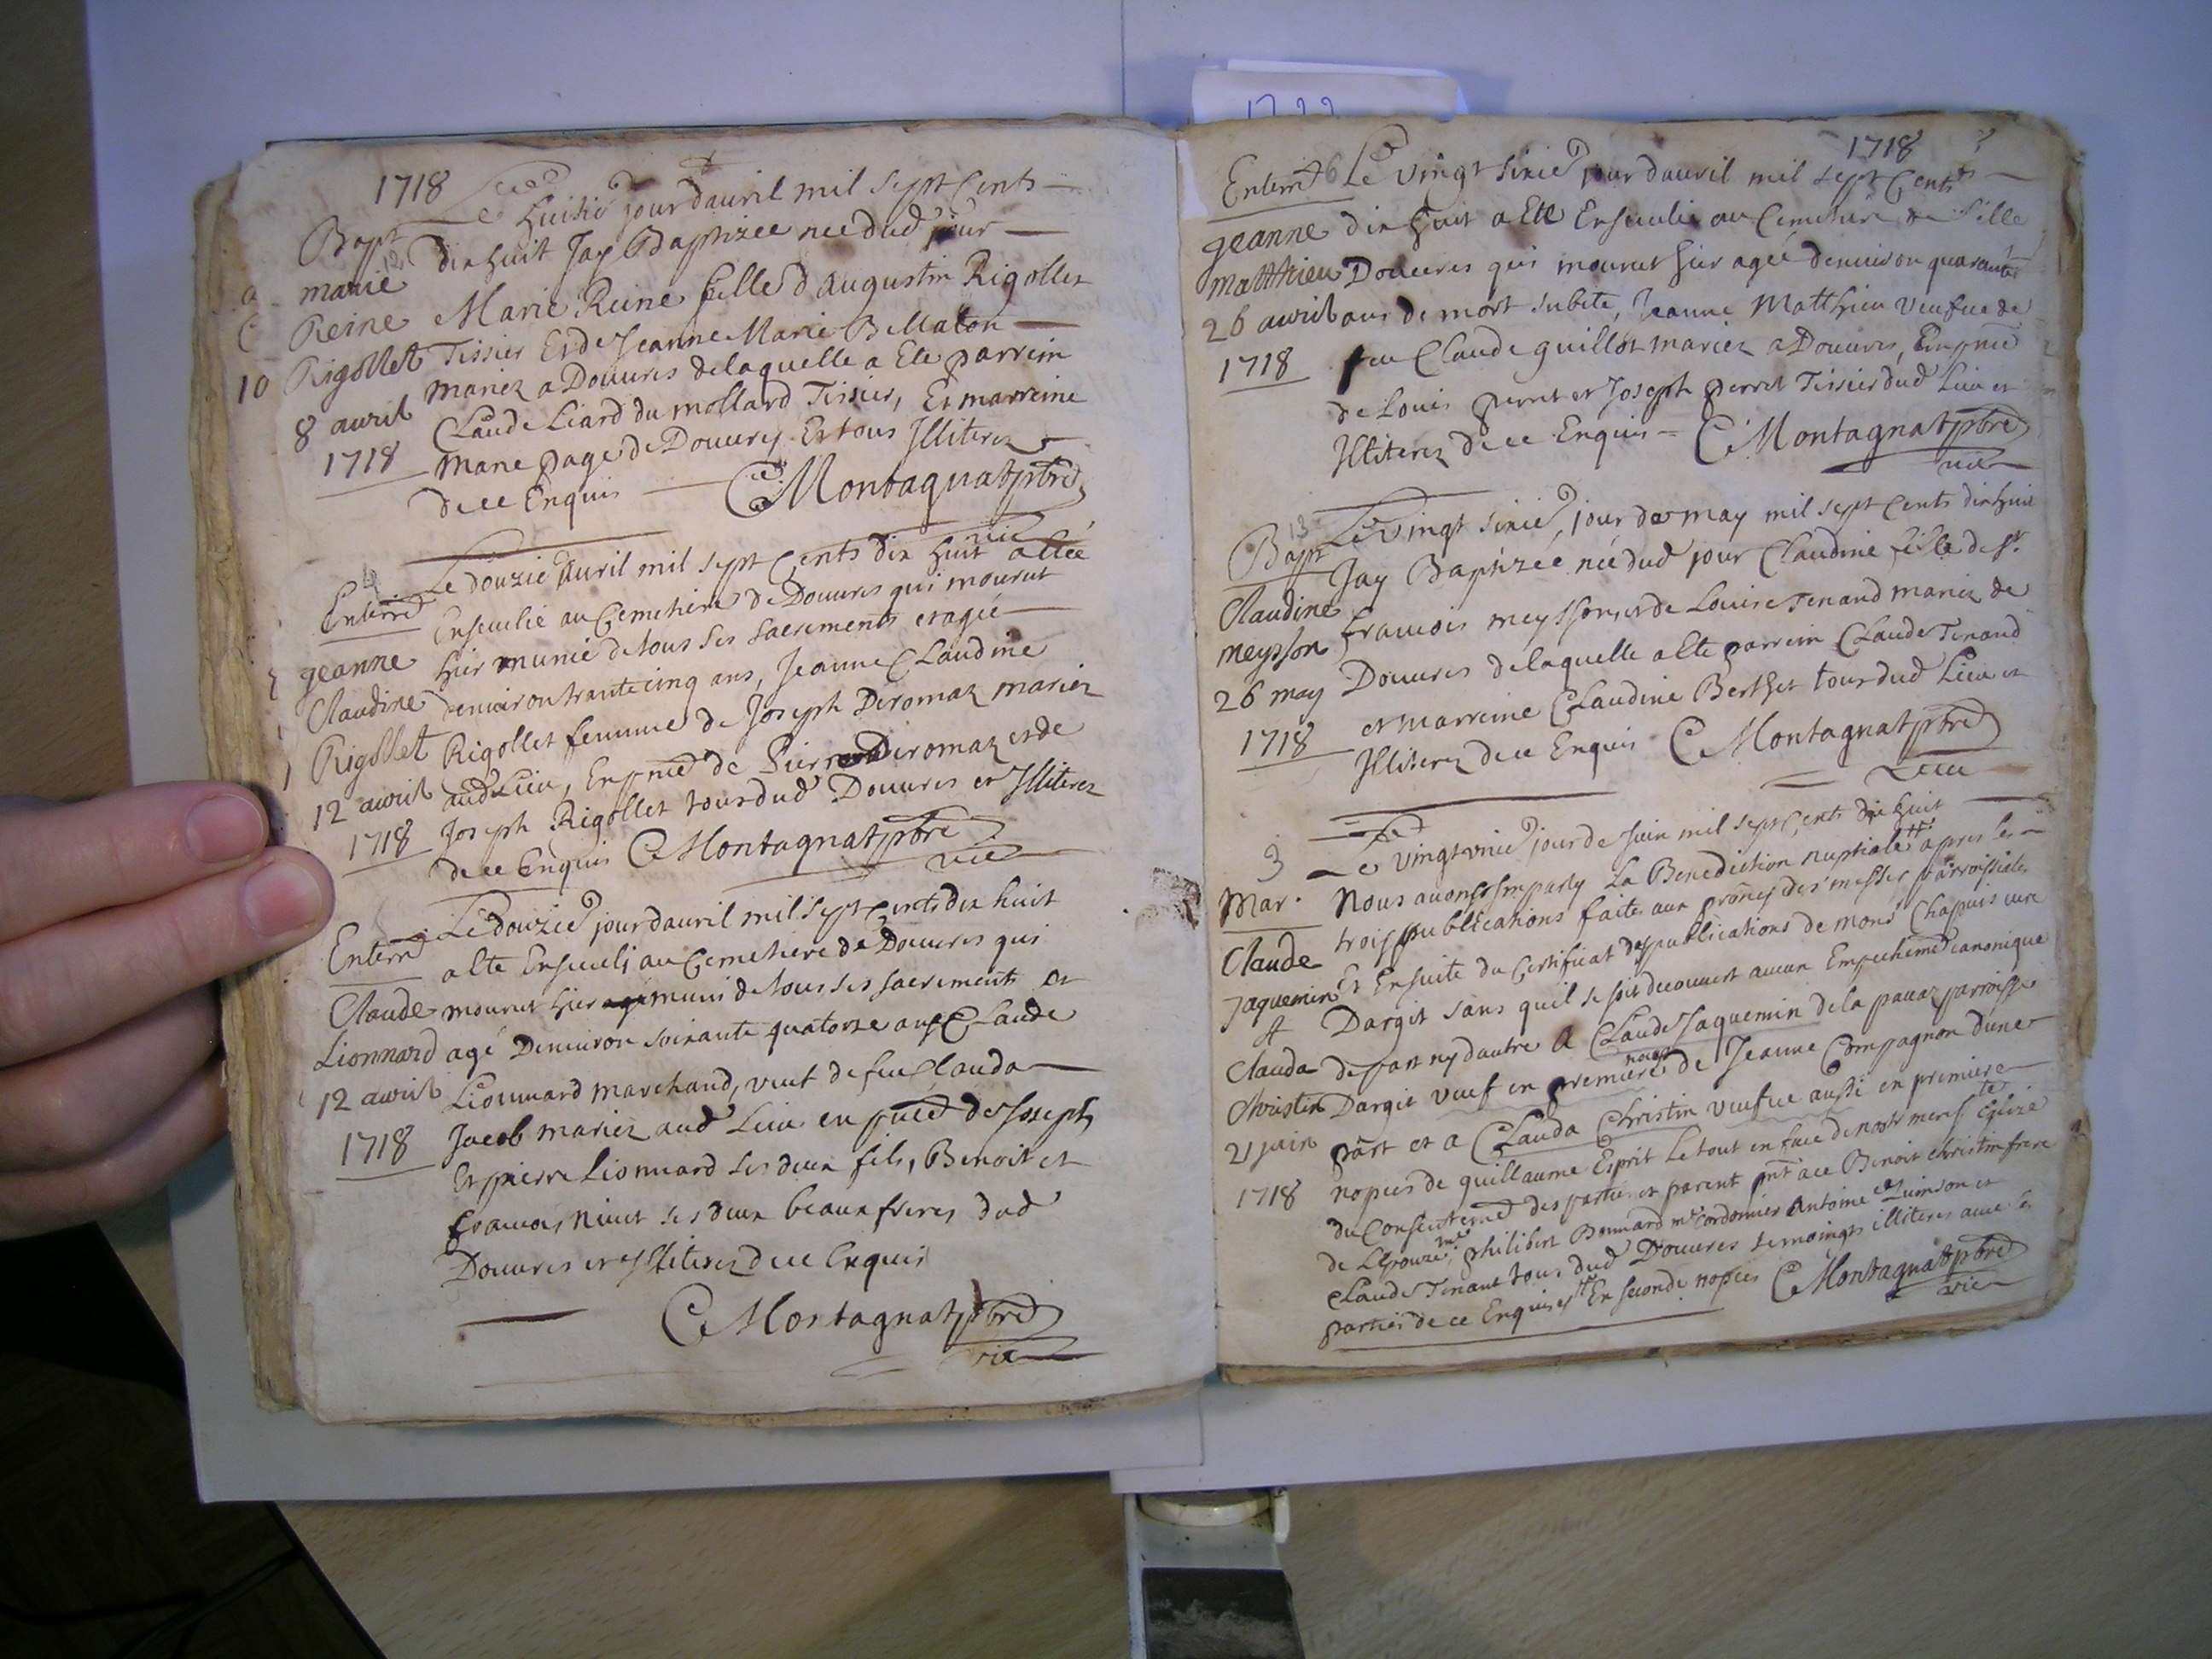 1718
Le huitie jour dauril mil sept Cents
Bapt
marie
Reine
Rigollet
8 auril
1718
dix huit Jay Baptizée née dud jour
Marie Reine fille d'augustin Rigollet
Tissier Et de Jeanne Marie Bellaton
Mariez a Douures de laquelle a Ete parrein
Claude Liard du mollard Tissier, Et marreine
Marie page de Douures Et tous Illiterez
de ce Enquis C Montagnat ptbre
vic
Enterré
geanne
Claudine
Rigollet
12 auril
1718
Le douzie auril mil sept Cents dix huit a Eté
Enseuelie au Cemetiere de Douures qui mourut
hier munie de tous ses sacrements et agée
denuiron trante cinq ans, Jeanne Claudine
Rigollet femme de Joseph Deromaz mariez
aud Lieu, En pnce de Pierre Deromaz et de
Joseph Rigollet tous dud Douures et Illiterez
de ce Enquis C Montagnat ptbre
vic
Enterré
Claude
Lionnard
12 auril
1718
Le douzie jour dauril mil sept cents dix huit
a Ete Enseueli au Cemetiere de Douures qui
mourut hier muni de tous ses sacrements et
agé Denuiron soixante quatorze ans Claude
Lionnard marchand, veuf de feu Clauda
Jacob mariez aud Lieu en pnce de Joseph
Et pierre Lionnard ses deux fils, Benoit et
francois niuet ses deux beaux freres dud
Douures et Illiterez de ce Enquis
C Montagnat ptbre
vic
1718
Enterré
geanne
Matthieu
26 auril
1718
6 Le vingt sixie jour dauril mil sept Cents
dix huit a Ete Enseuelie au Cemetiere de
Douures qui mourut hier agée denuiron quarante
ans de mort subite, Jeanne Matthieu veufue de
feu Claude guillot mariez a Douures, En pnce
de Louis perret et Joseph perret Tissier dud Lieu et
Illiterez de ce Enquis = C Montagnat ptbre
vic
13
Bapt
Claudine
Meysson
26 may
1718
Le vingt sixie jour de may mil sept Cents dix huit
Jay Baptizée née dud jour Claudine fille de sr
francois meysson, et de Louise Tenand mariez de
Douures de laquelle a Ete parrein Claude Tenand
et marreine Claudine Berthet tous dud Lieu et
Illiterez de ce Enquis C Montagnat ptbre
3
Mar.
Claude
Jaquemin
&
Clauda
Christin
21 juin
1718
Le vingt vnie jour de Juin mil sept Cents dix huit
Nous auons Imparty La Benediction nuptiale apres les
trois publications faites aux prônes des messes parroissiales
Et Ensuite du Certificat des publications de mons Chapuis curé
Dargit sans quil se soit decouuert aucun Empechemt canonique
de part ny dautre a Claude Jaquemin de la parroisse
Dargit veuf en premiere nopces de Jeanne Compagnon dune
part et a Clauda Christin veufue aussi en premiere
nopces de guillaume Esprit Le tout en face de notre mere ste Eglize
du Consentemt des parties et parent pnt a ce Benoit christin frere
de Lepouze, philibert Bonnard me cordonnier Antoine et
Claude Tenant tous dud Douures temoings illiteres auec les
parties de ce Enquises En seconde nopces C Montagnat ptbre
vic